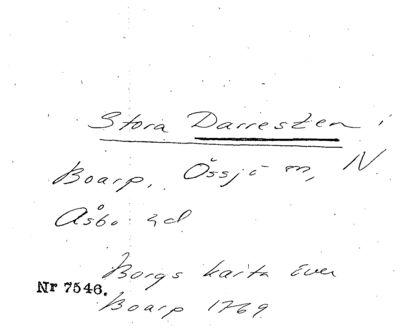 Stora Darresten i
Boarp, Össjö sn, N
Åsbo hd
Borgs karta över
Nr 7546.
Boarp 1769